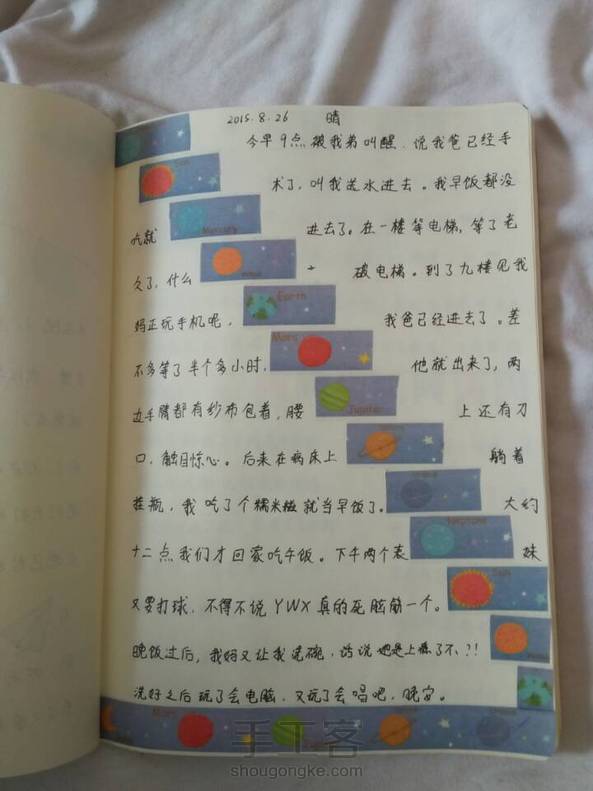 2015.8.26 晴
今早9点被我弟叫醒，说我爸已经手
术了，叫我送水进去。我早饭都没
吃就 Mercury 进去了。在一楼等电梯，等了老
久了，什么 破电梯。到了九楼见我
妈正玩手机呢， Earth 我爸已经进去了。差
不多等了半个多小时， Mars 他就出来了，两
边手臂都有纱布包着，腰 Jupiter 上还有刀
口，触目惊心。后来在病床上 躺着
挂瓶，我吃了个糯米糍就当早饭了。 大约
十二点我们才回家吃午饭。下午两个表 Neptune 妹
又要打球，不得不说YWX真的死脑筋一个。
晚饭过后，我妈又让我洗碗，话说她是上瘾了不，?!
洗好之后玩了会电脑，又玩了会唱吧，晚安。
Mars
手工客
shougongke.com